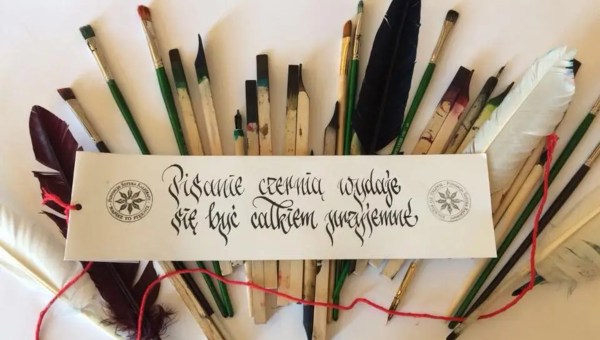 Pisanie czernią wydaje
się być całkiem przyjemne